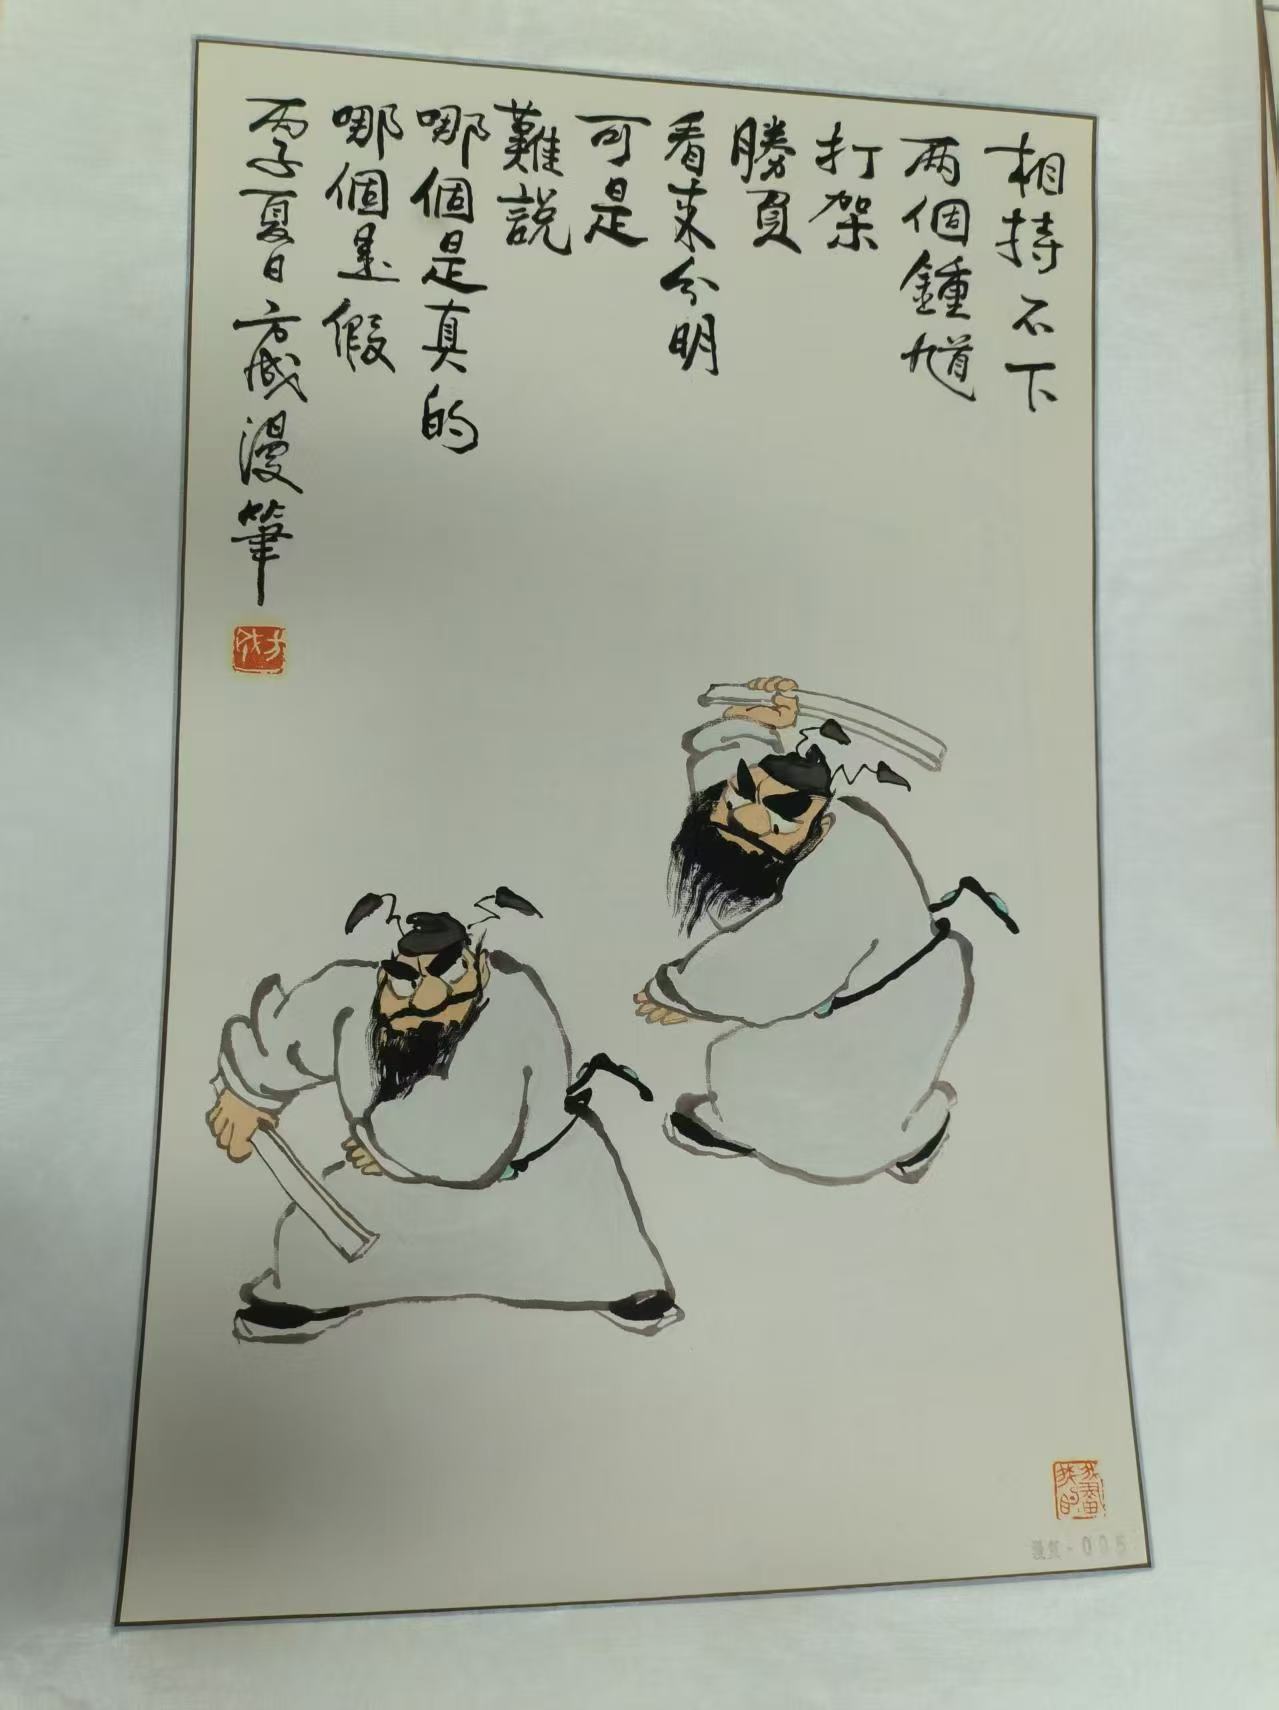 相持不下
两個鍾馗
打架
勝負
看来分明
可是
難説
哪個是真的
哪個是假
丙子夏日方成漫筆
方成
005